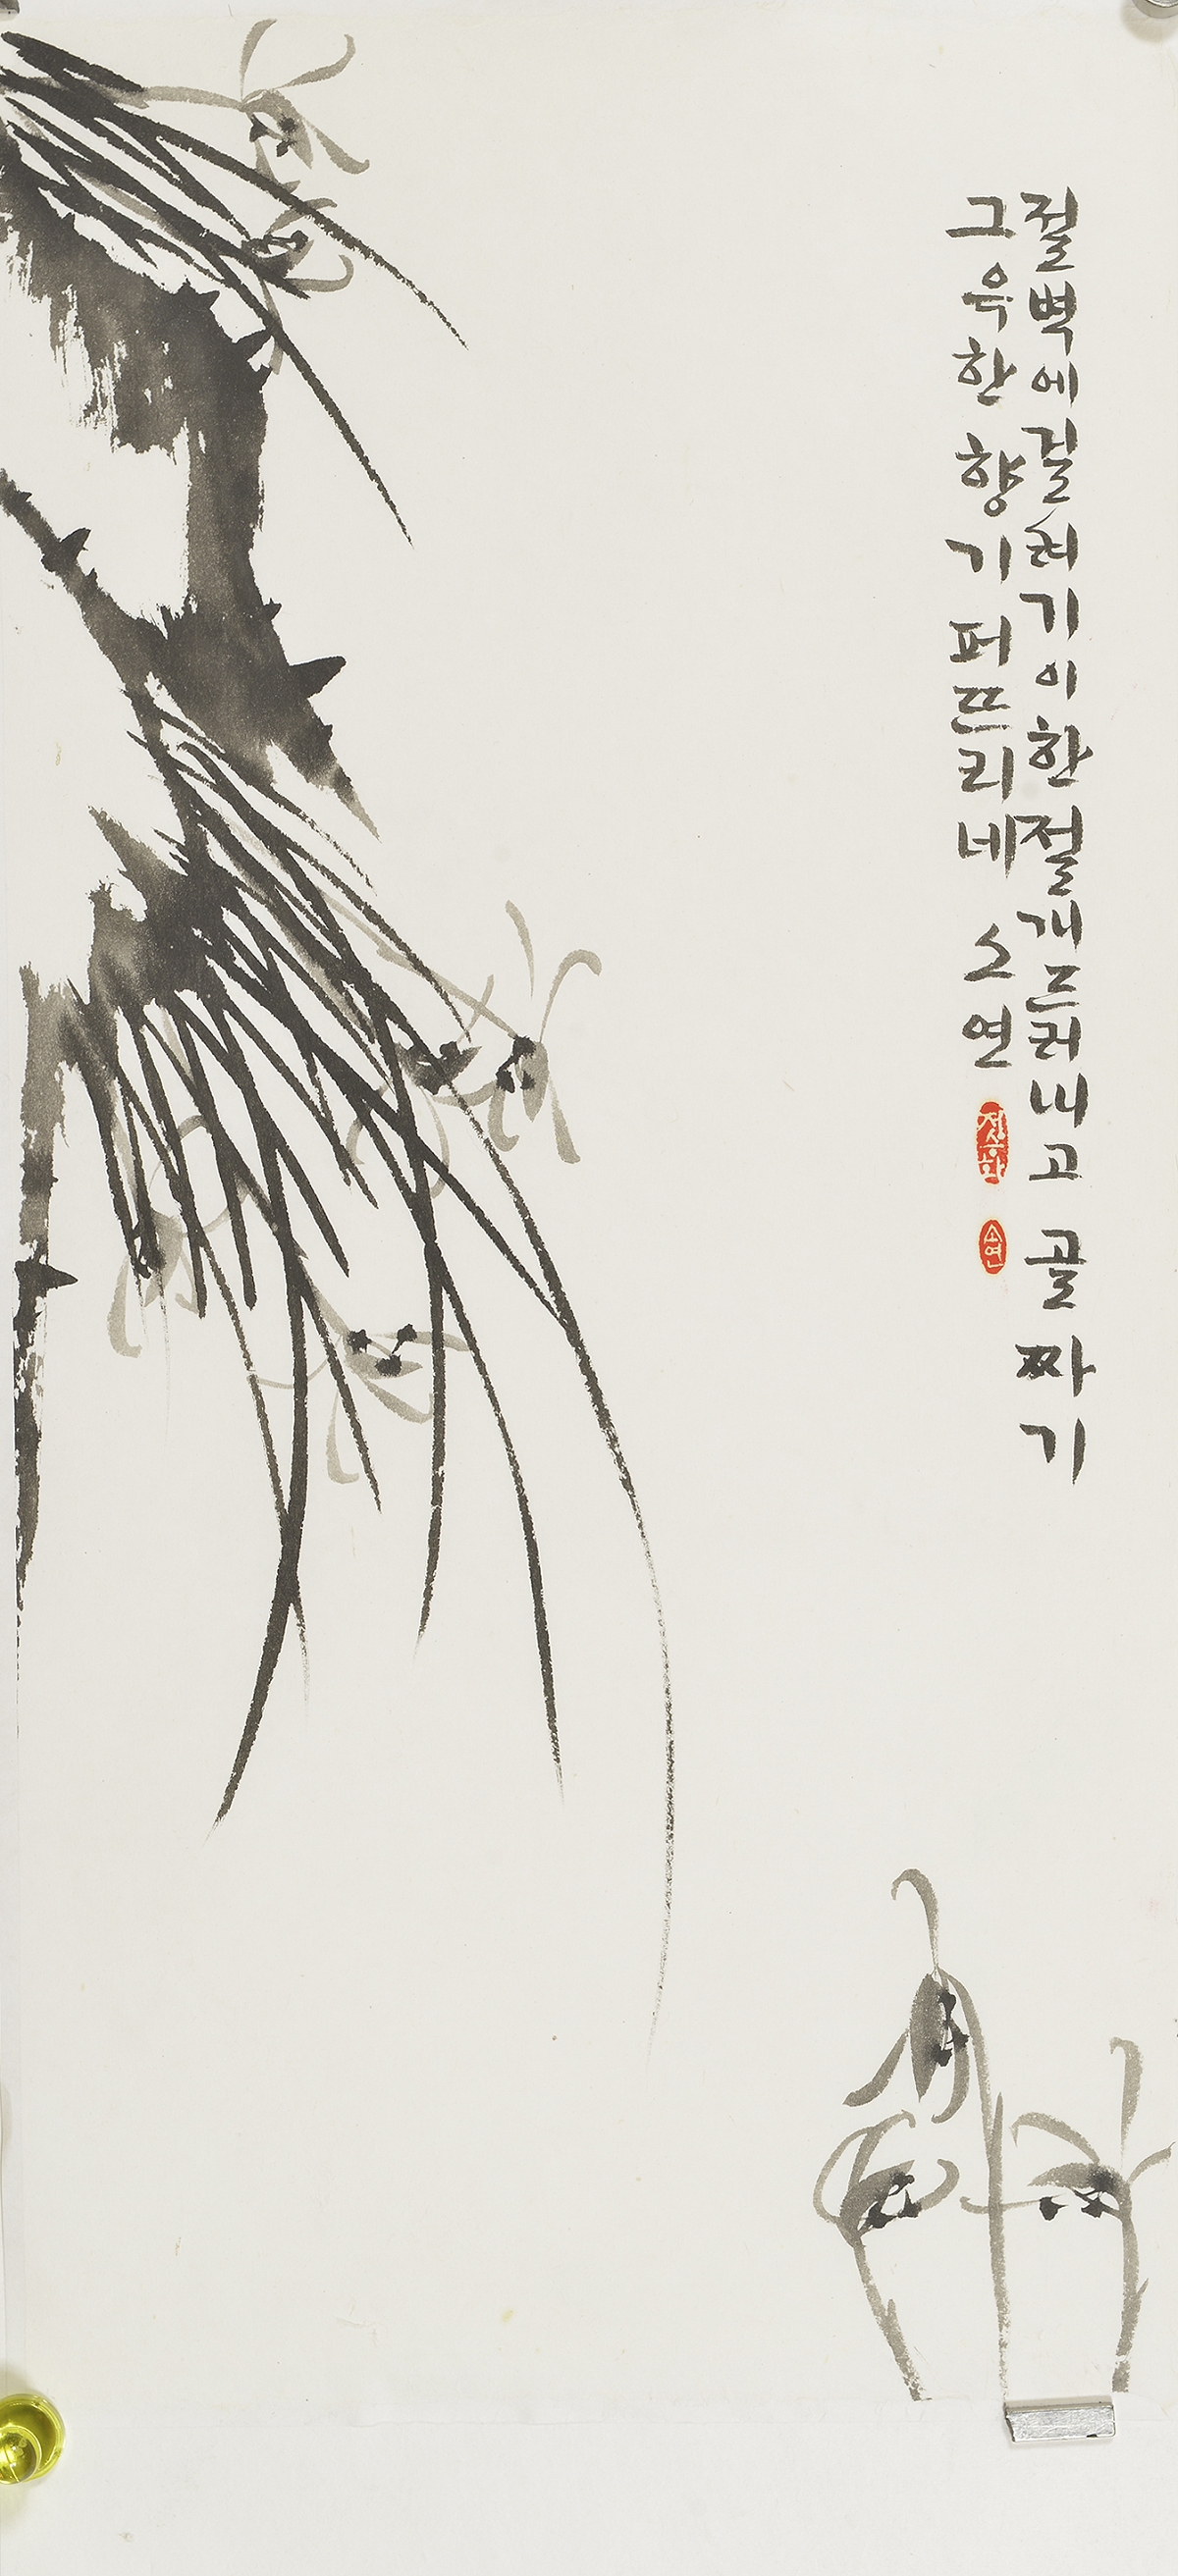 절벽에 걸려 기이한 절개 드러내고 골짜기
그윽한 향기 퍼뜨리네 소연
정승화
소연